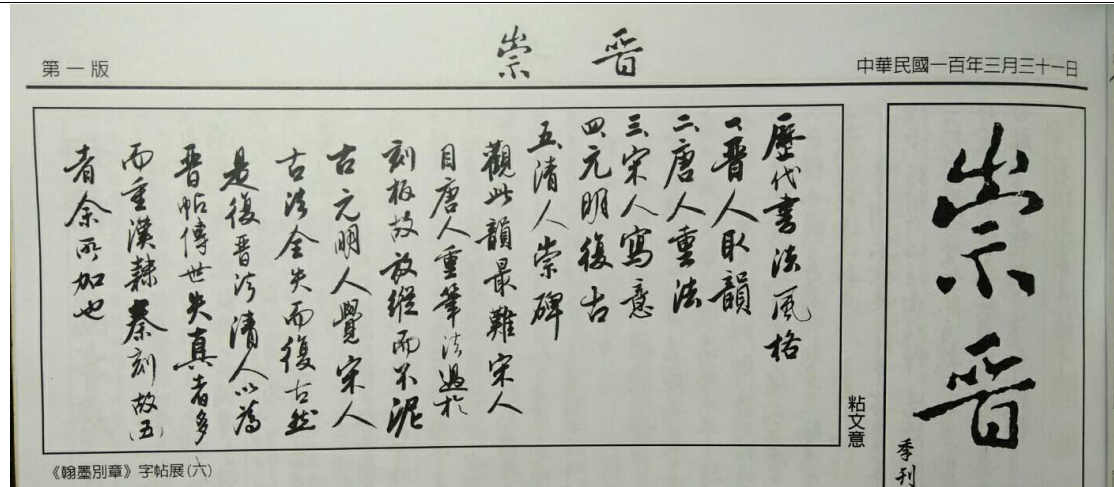 第一版
崇晋
中華民國一百年三月三十一日
歷代書法風格
一、晋人取韻
二、唐人重法
三、宋人寫意
四、元明復古
五、清人崇碑
觀此韻最難宋人
目唐人重筆法過於
刻板故放縱而不泥
古元明人覺宋人
古法全失而復古然
是復晋法清人以為
晋帖傳世失真者多
而重漢隸秦刻故(五)
者余所加也
粘文意
《翰墨別章》字帖展(六)
崇晋
季刊